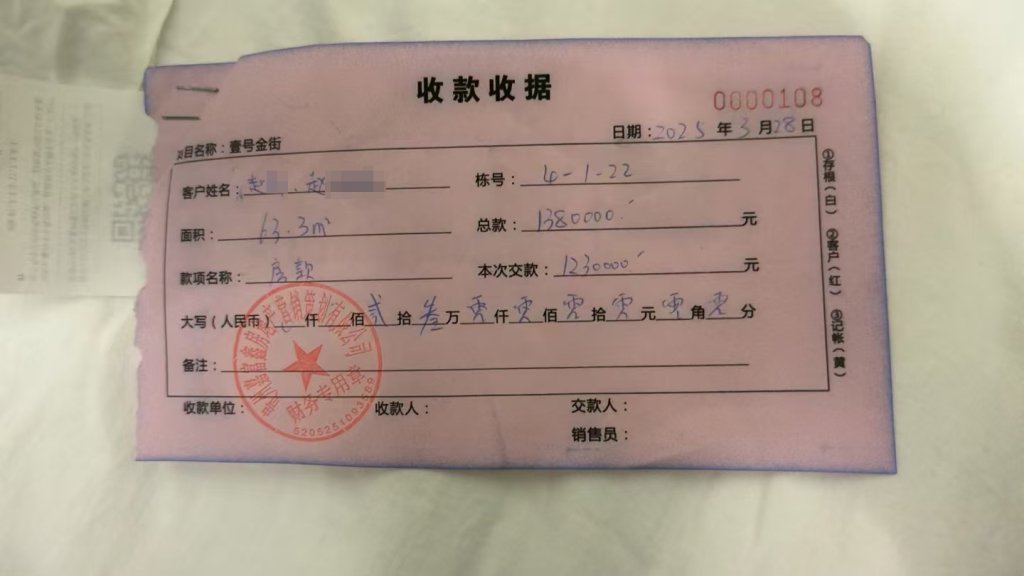 收款收据
0000108
日期：2025年3月28日
项目名称：壹号金街
客户姓名：赵 、赵
栋号：4-1-22
面积：63.3m²
总款：1380000元
款项名称：房款
本次交款：1230000元
大写（人民币） 仟 佰贰拾叁万零仟零佰零拾零元零角零分
备注：
收款单位：
收款人：
交款人：
销售员：
①存根（白）②客户（红）③记帐（黄）
富鑫房地产营销策划有限公司
财务专用章